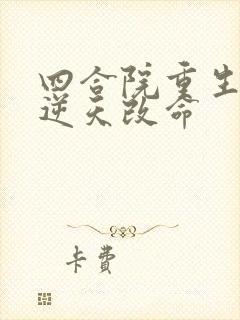 四合院重生
逆天改命
卡费